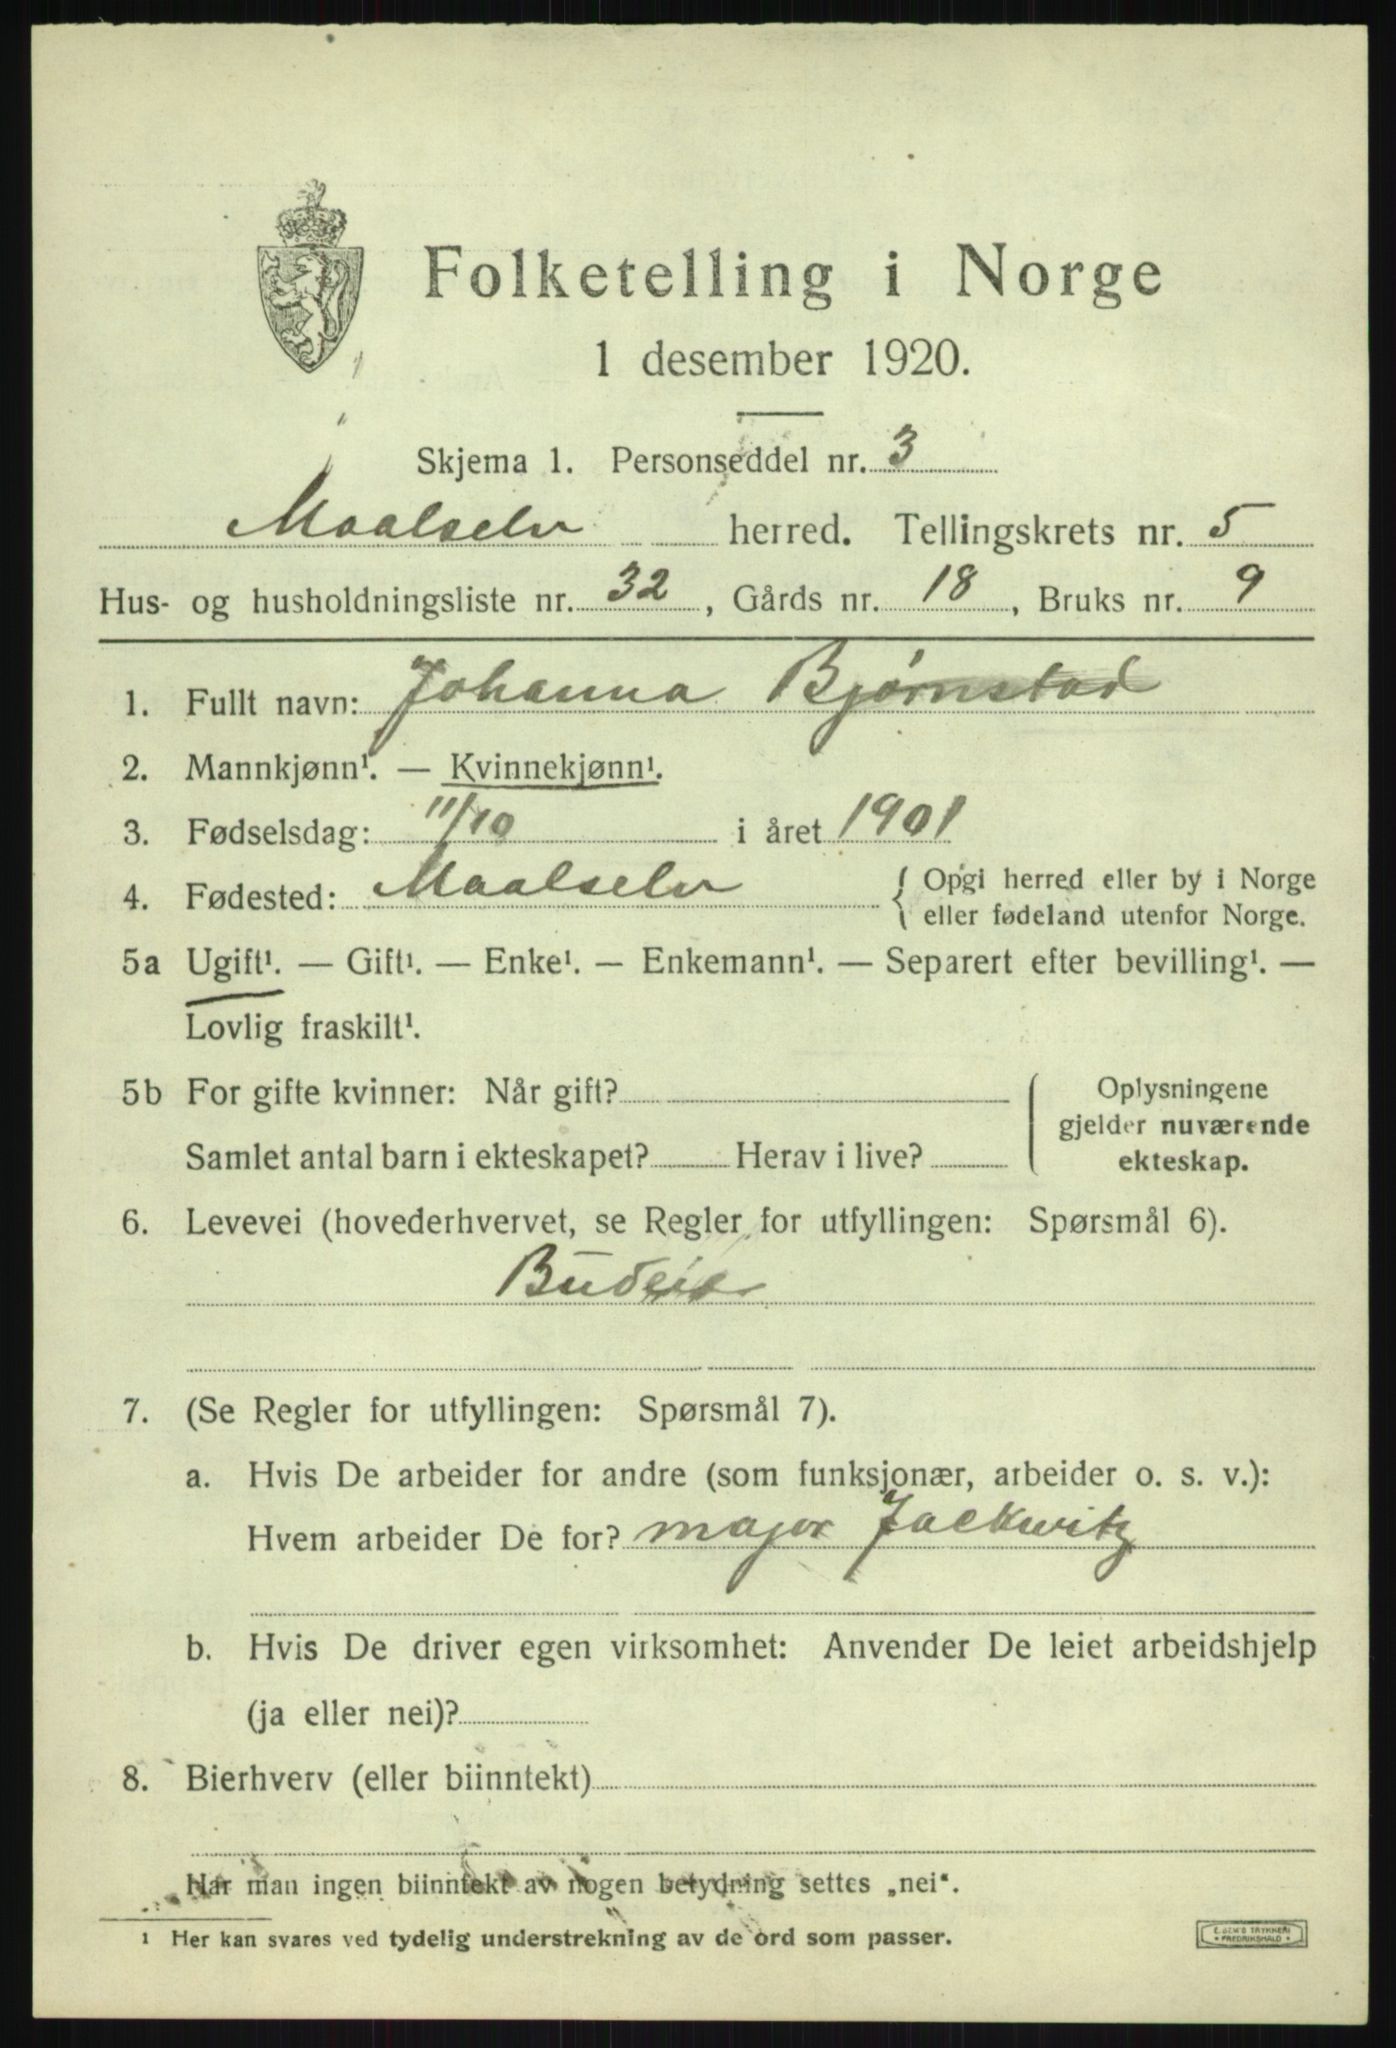 Folketelling i Norge
1 desember 1920.
Skjema 1. Personseddel nr. 3
Maalselv herred. Tellingskrets nr. 5
Hus- og husholdningsliste nr. 32, Gårds nr. 18, Bruks nr. 9
1. Fullt navn: Johanna Bjørnstad
2. Mannkjønn¹. — Kvinnekjønn¹.
3. Fødselsdag: 11/10 i året 1901
4. Fødested: Maalselv { Opgi herred eller by i Norge
eller fødeland utenfor Norge.
5a Ugift¹. — Gift¹. — Enke¹. — Enkemann¹. — Separert efter bevilling¹. —
Lovlig fraskilt¹.
5b For gifte kvinner: Når gift?
Samlet antal barn i ekteskapet? Herav i live?
Oplysningene
gjelder nuværende
ekteskap.
6. Levevei (hovederhvervet, se Regler for utfyllingen: Spørsmål 6).
Budeie
7. (Se Regler for utfyllingen: Spørsmål 7).
a. Hvis De arbeider for andre (som funksjonær, arbeider o. s. v.):
Hvem arbeider De for? major Jackwitz
b. Hvis De driver egen virksomhet: Anvender De leiet arbeidshjelp
(ja eller nei)?
8. Bierhverv (eller biinntekt)
Har man ingen biinntekt av nogen betydning settes „nei“.
¹ Her kan svares ved tydelig understrekning av de ord som passer.
E. SEM'S TRYKKERI
• FREDRIKSHALD •